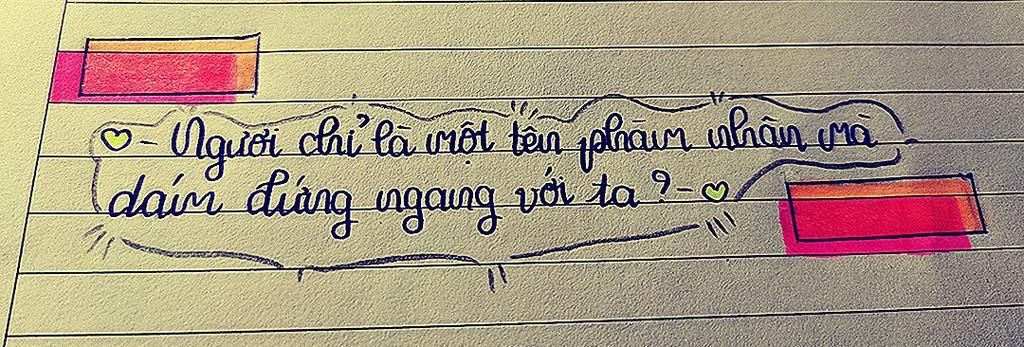 - Ngươi chỉ là một tên phàm nhân mà
dám đứng ngang với ta ? -